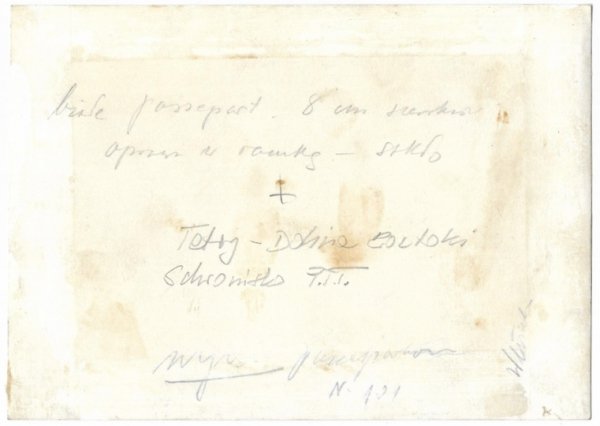 białe passepart. 8 cm szerokie
oprawa w ramkę – szkło
+
Tatry – Dolina
Schronisko T.T.
N. 191